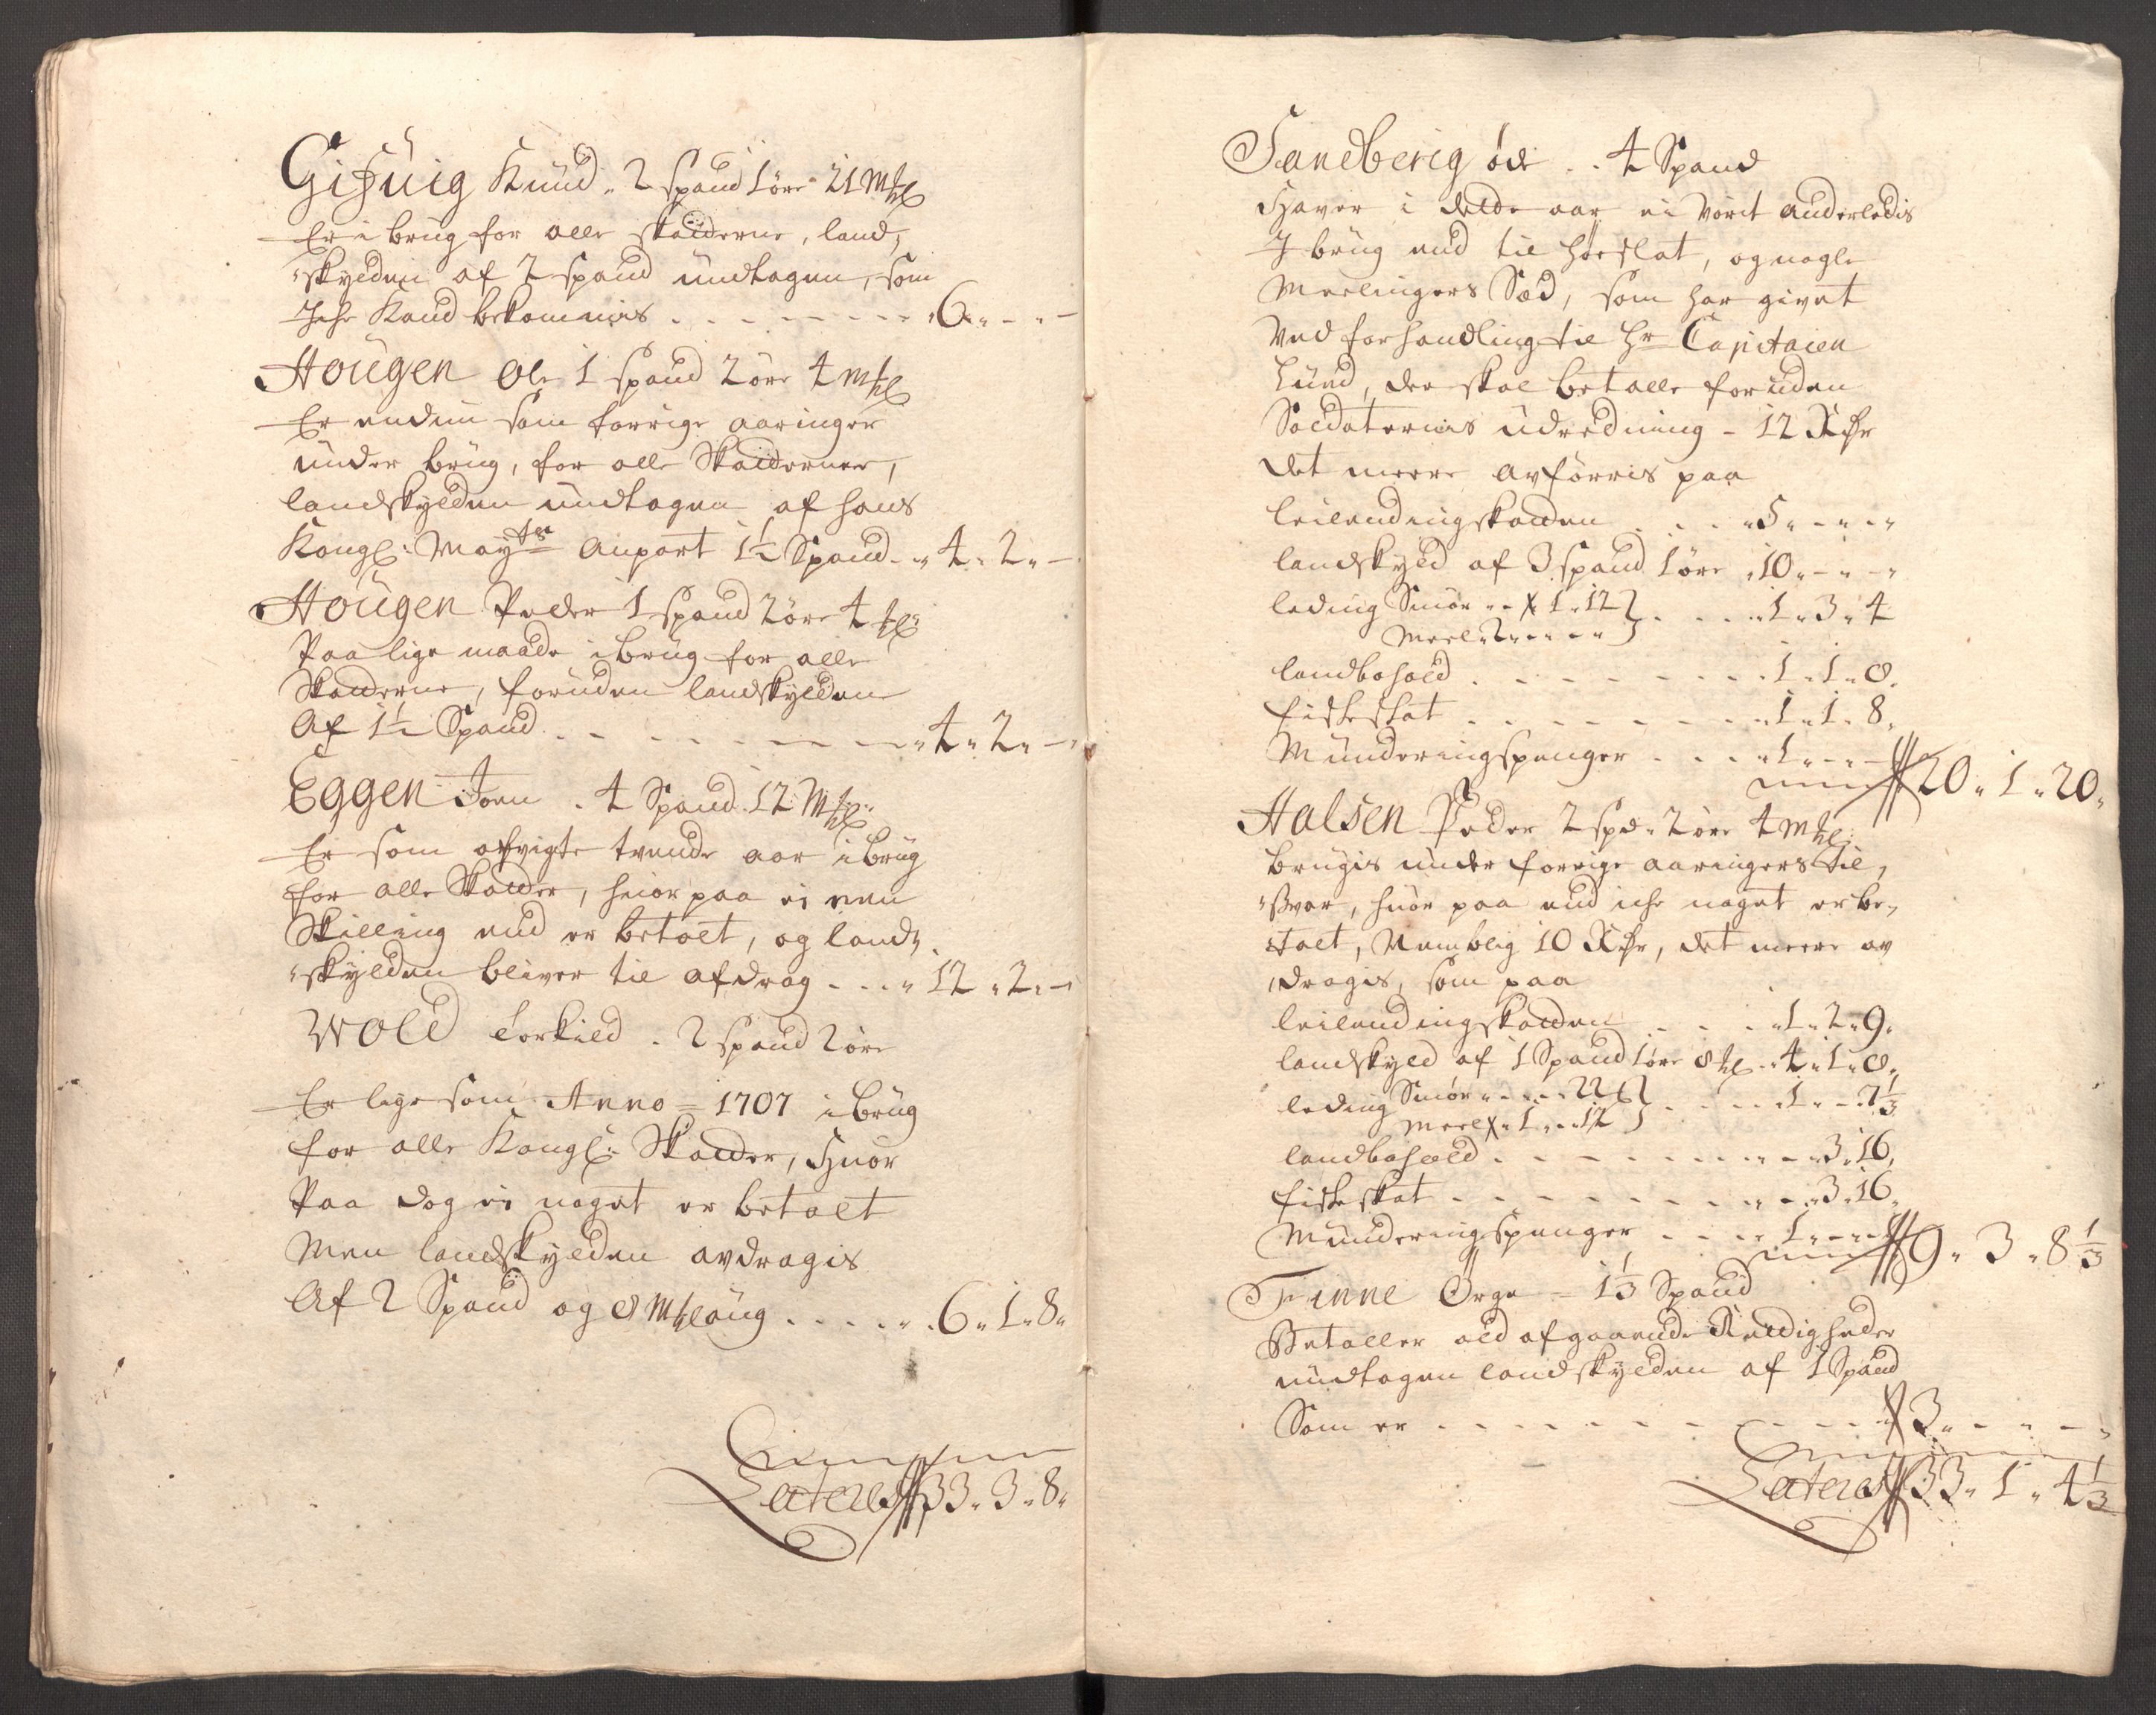 Gisuig Knud. 2 spand 1 øre 21 Mkl
Er i brug for alle skatterne, land,
skylden af 2 spand undtagen, som
Iche Kand bekommis . . . 6 " - " -
Hougen Ole 1 spand 2 øre 4 mkl
Er endnu som forrige aaringer
under brug, for alle Skatterne,
landskylden undtagen af hans
Kongl: Mayts Anpart 1½ Spand - " 4 " 2 " -
Hougen Peder 1 spand 2 øre 4 kl:
Paa lige maade i brug for alle
Skatterne, foruden landskylden
Af 1½ Spand . . . " 4 " 2 " -
Eggen Joen . 4 Spand 12 Mkl:
Er som afvigte tvende aar i brug
for alle Skatter, huor paa ei een
Skilling end er betalt, og land,
skylden bliver til afdrag . . . " 12 " 2 " -
Wold Torkild . 2 spand 2 øre
Er lige som Anno = 1707 i brug
for alle Kongl: Skatter, Huor
Paa dog ei noget er betalt
Men landskylden avdragis
Af 2 Spand og 8 Mklaug . . . 6 " 1 " 8 "
Lateris 33 " 3 " 8 "
Sandberig øde . . 4 Spand
Haver i dette aar ei vørit anderledis
I brug end til høeslat, og nogle
Meelingers Sæd, som har givet
Ved forhandling til Hr Capitaien
Lund, der skal betalle foruden
Soldaternis udredning - 12 Rdr
det meere avførris paa
leilendingskatten . . . " 5 " - " - "
landskyld af 3 spand 1 øre " 10 " - " - "
leding Smør - 1 " 12 } . . . 1 " 3 " 4
Meel " 2 " - " - " }
landbohold . . . 1 " 1 " 8 "
fiskeskat . . . 1 " 1 " 8 "
Munderingspenger . . . 1 " - " -
20 " 1 " 20 "
Halsen Peder 2 spd " 2 øre 4 mkl:
brugis under forrige aaringers til,
svar, huor paa end iche noget er be,
talt, Nemblig 10 Rdr, det meere av
dragis, som paa
leilendingskatten . . . 1 " 2 " 9 "
landskyld af 1 Spand 1 øre 8 kl - 4 " 1 " 8 "
leding Smør " - " - 22 } . . . 1 " - " 2⅓
Meel " 1 " - 12 }
landbohold . . . - " 3 " 16 "
fiskeskat . . . - " 3 " 16 "
Munderingspenger . . . 1 " - " -
9 " 3 " 8⅓
Finne Ørge - 1⅓ Spand
Betaller ald afgaaende Rettigheder
undtagen landskylden af 1 Spand
Som er . . . 3 " - " - "
Lateris 33 " 1 " 4⅓